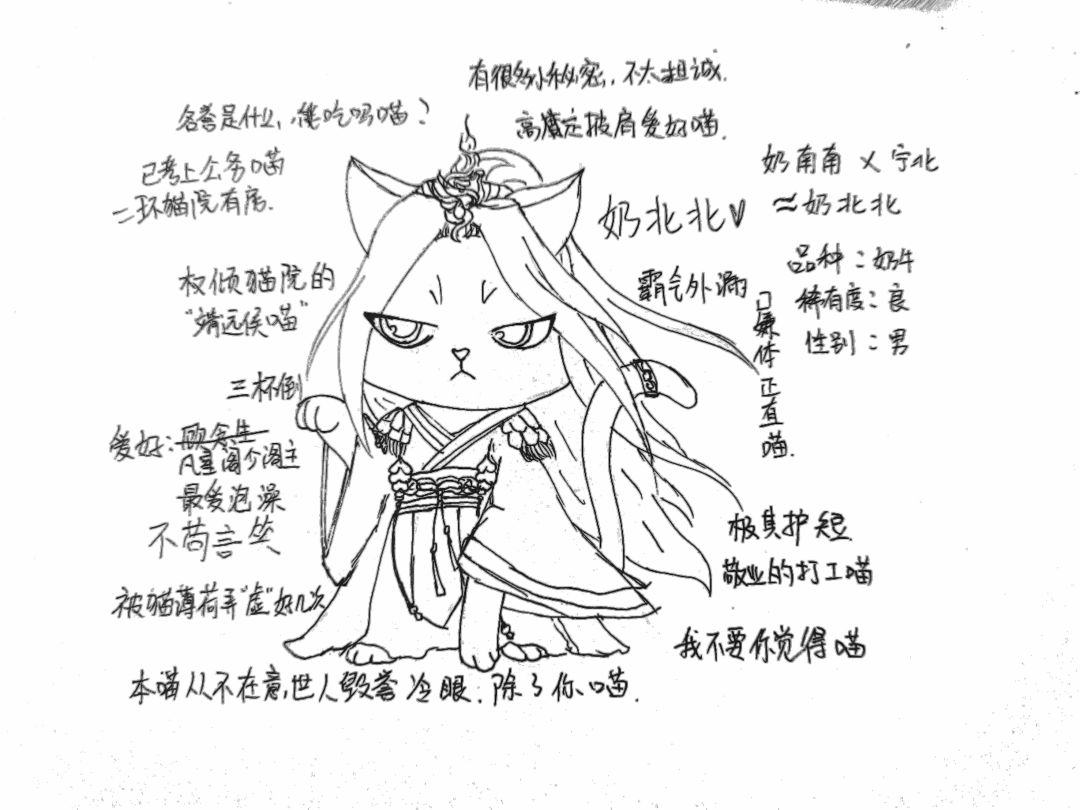 有很多小秘密，不太坦诚.
名誉是什么，能吃吗喵？
高奢定披肩爱好喵.
已考上公务喵
二环猫院有房.
奶南南 × 宁北
≈奶北北
奶北北
品种：奶牛
稀有度：良
性别：男
霸气外漏
口嫌体正直喵.
权倾猫院的
“靖远侯喵”
三杯倒
爱好：顾余生
凡童阁少阁主
最爱泡澡
不苟言笑
极其护短
敬业的打工喵
被猫薄荷弄“虚”好几次
我不要你觉得喵
本喵从不在意，世人毁誉冷眼.除了你、喵.